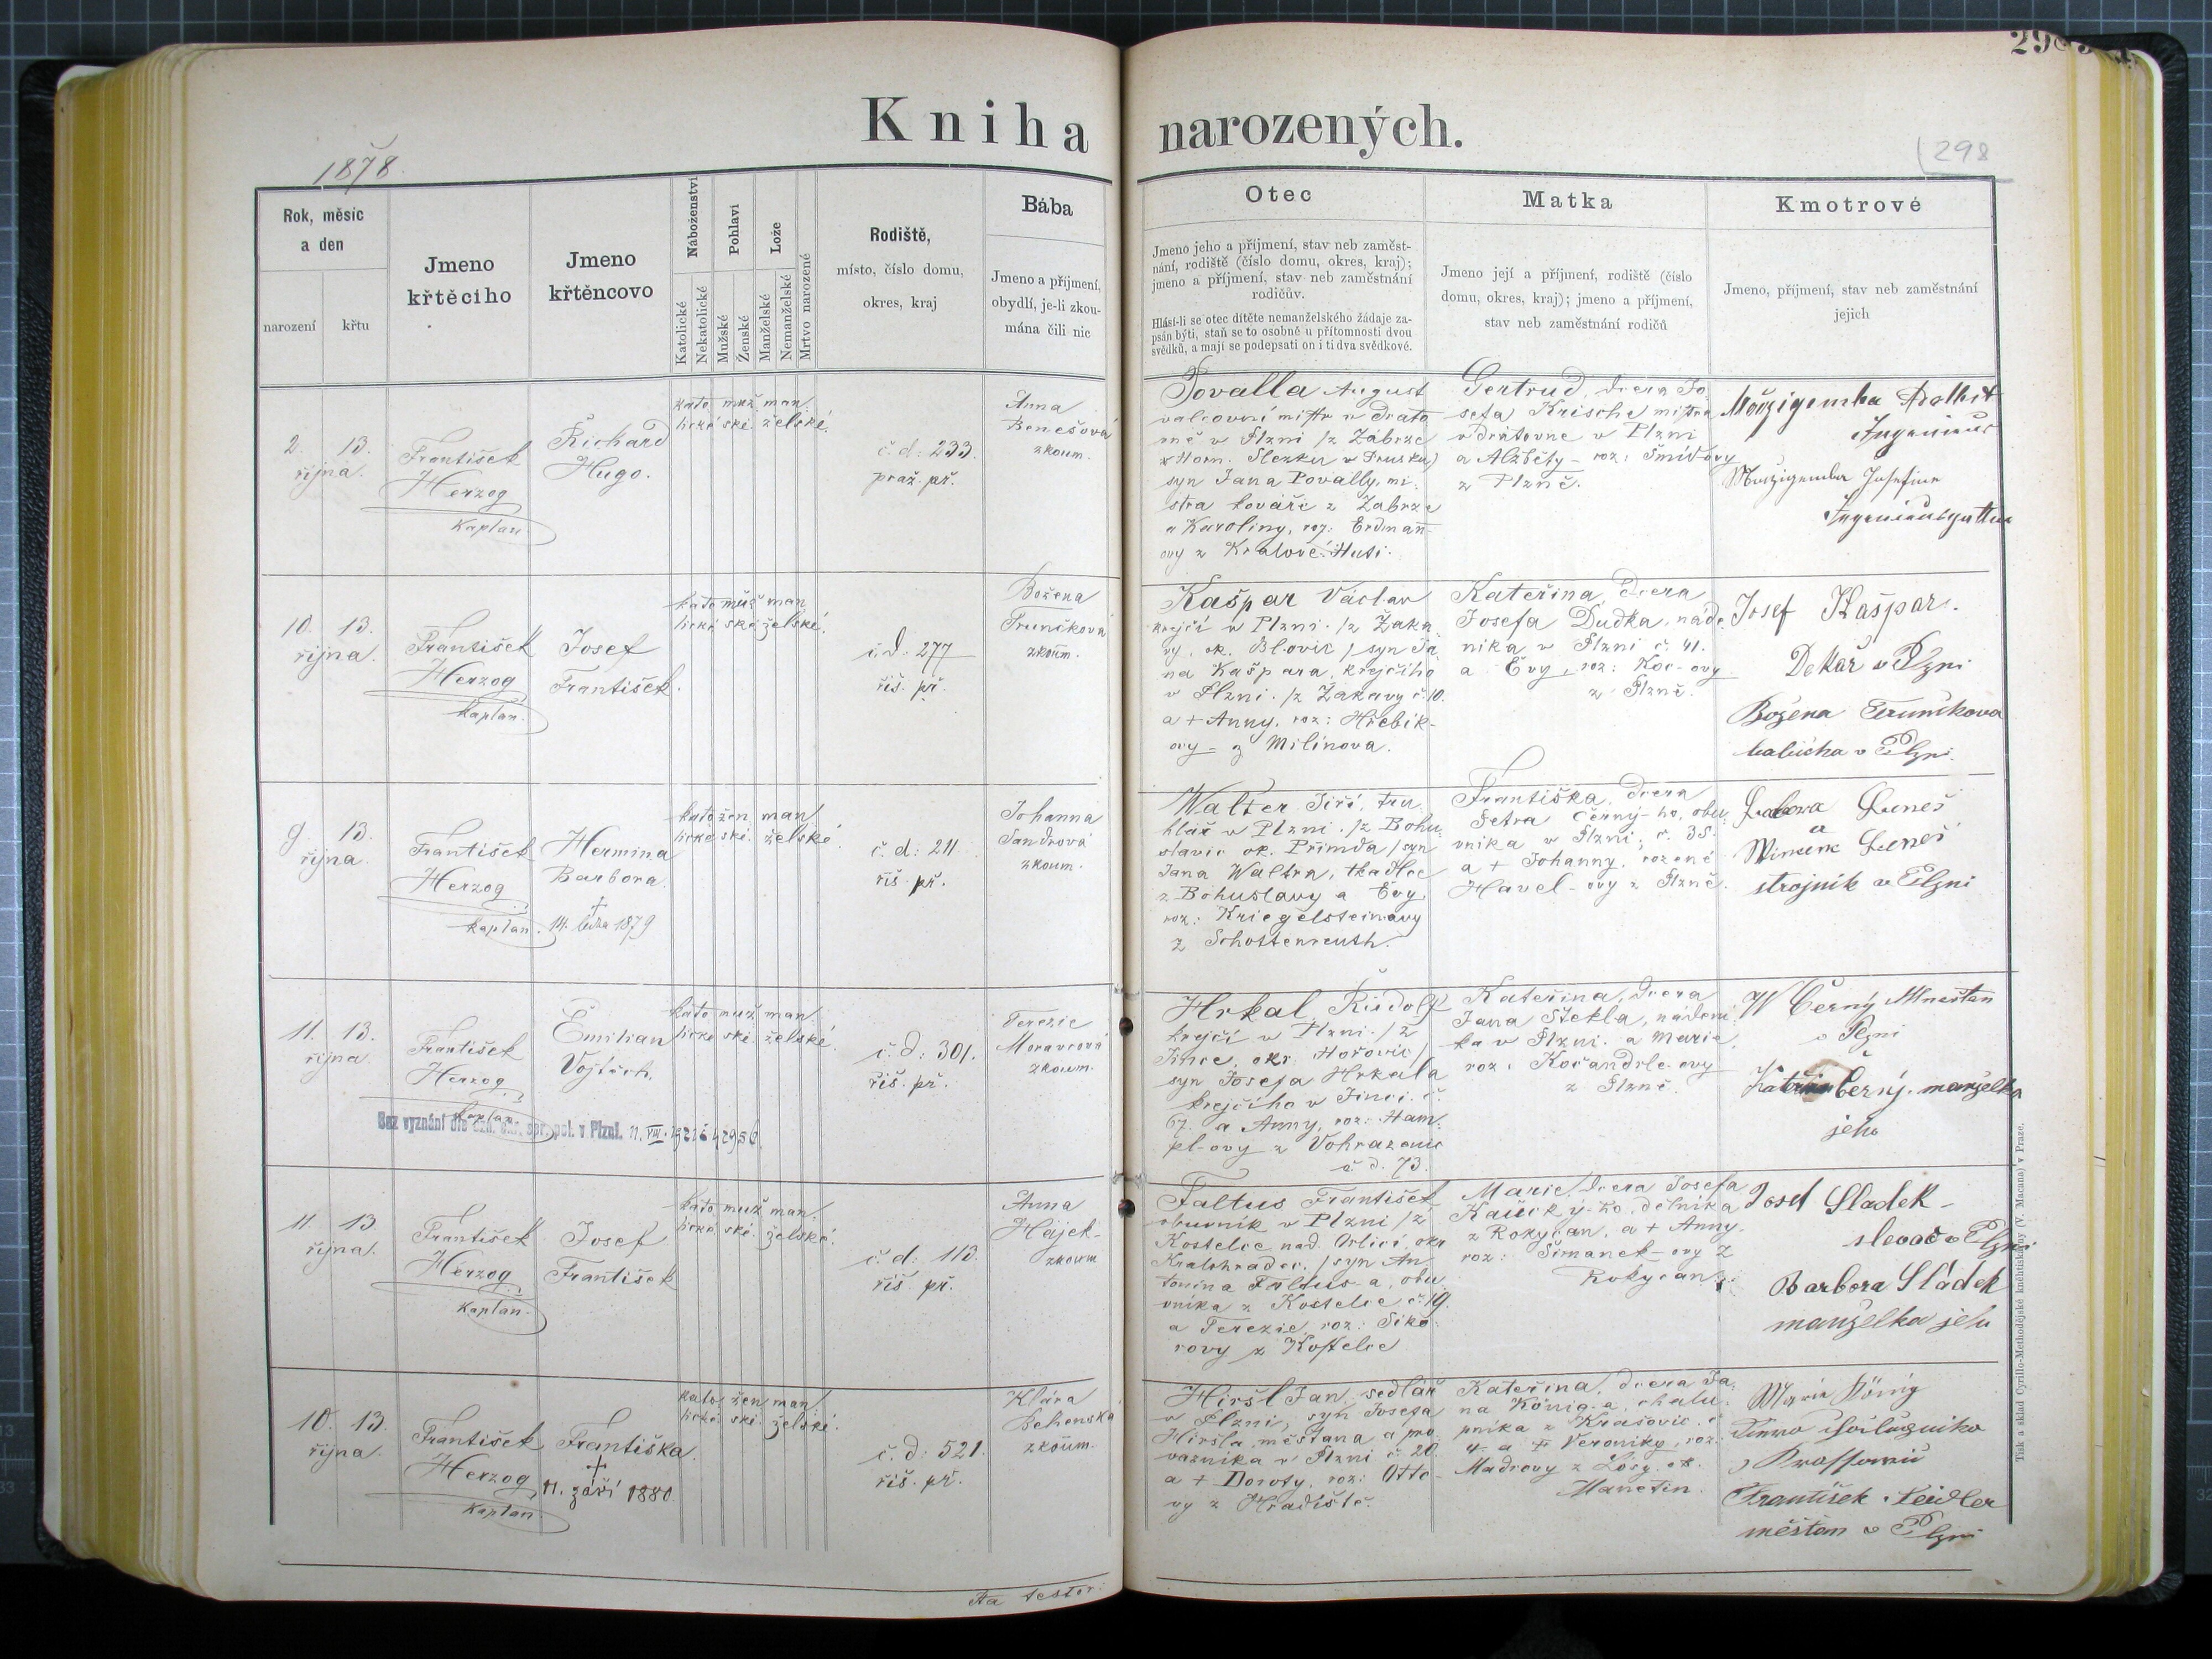 Kniha narozených.
1878.
298
Rok, měsíc
a den
narození
křtu
Jmeno
křtěcího
Jmeno
křtěncovo
Náboženství
Katolické
Nekatolické
Pohlaví
Mužské
Ženské
Lože
Manželské
Nemanželské
Mrtvo narozené
Rodiště,
místo, číslo domu,
okres, kraj
Bába
Jmeno a příjmení,
obydlí, je-li zkou-
mána čili nic
Otec
Jmeno jeho a příjmení, stav neb zaměst-
nání, rodiště (číslo domu, okres, kraj);
jmeno a příjmení, stav neb zaměstnání
rodičův.
Hlásí-li se otec dítěte nemanželského žádaje za-
psán býti, staň se to osobně u přítomnosti dvou
svědků, a mají se podepsati on i ti dva svědkové.
Matka
Jmeno její a příjmení, rodiště (číslo
domu, okres, kraj); jmeno a příjmení,
stav neb zaměstnání rodičů
Kmotrové
Jmeno, příjmení, stav neb zaměstnání
jejich
2. 13.
října.
František
Herzog
kaplan.
Richard
Hugo.
kato muž man
lické ské. želské.
č. d: 233.
praž. př.
Anna
Benešová
zkoum.
Povalla August
valcovní mistr v drato
vně v Plzni /z Zábrze
v Horn. Slezku v Prusku)
syn Jana Povally, mi-
stra kováře z Zabrze
a Karoliny, roz: Erdman̄-
ovy z Králové Huti.
Gertrud, dcera Jo
sefa Krische mistra
v drátovne v Plzni
a Alžběty - roz: Šmídovy
z Plzně.
Ingenieur
10. 13.
října.
František
Herzog
kaplan.
Josef
František.
kato muž man
lické ské želské.
č. d: 277
říš. př.
Božena
Trunčkova
zkoum.
Kašpar Václav
krejčí v Plzni. /z Žaka
vy, ok. Blovic / syn Ja
na Kašpara, krejčího
v Plzni. /z Žakavy č. 10.
a + Anny, roz: Hřebík-
ovy - z Milínova.
Kateřina, dcera
Josefa Dudka, náde
níka v Plzni č. 41.
a Evy, roz: Koc-ovy
z Plzně.
Josef Kašpar.
Dekař v Plzni
Božena Trunčkova
v Plzni.
9. 13.
října.
František
Herzog
kaplan.
Hermina
Barbora.
+
14. ledna 1879
kato žen man
lické ské. želské.
č. d: 211
říš. př.
Johanna
Sandrová
zkoum.
Walter Jiří, tru
hlář v Plzni. /z Bohu
slavic ok. Přimda / syn
Jana Waltra, tkadlce
z Bohuslavy a Evy
roz: Kriegelsteinovy
z Schottenreuth.
Františka, dcera
Petra Černý-ho, obu
vníka v Plzni, č. 35.
a + Johanny, rozené
Havel-ovy z Plzně.
Beneš
a
Beneš
strojník v Plzni
11. 13.
října.
František
Herzog
kaplan.
Emilian
Vojtěch.
kato muž man
lické ské. želské.
č. d: 301.
říš. př.
Terezie
Moravcová
zkoum.
Bez vyznání dle ozn. okr. spr. pol. v Plzni. 11. VIII. 1921 č 42956.
Hrkal Rudolf
krejčí v Plzni. /z
Jince, okr. Hořovic/
syn Josefa Hrkala
krejčího v Jinci. č.
67. a Anny, roz: Ham-
pl-ovy z Vohrazenic
č. d. 73.
Kateřina, dcera
Jana Štekla, nádení
ka v Plzni. a Marie,
roz: Kočandrle-ovy
z Plzně.
W Černý Mněšťan
v Plzni
Černý. manželka
jeho
11. 13.
října.
František
Herzog
kaplan.
Josef
František
kato muž man
lické ské. želské.
č. d: 113.
říš. př.
Anna
Hájek-
zkoum
Faltus František
obuvník v Plzni /z
Kostelce nad Orlicí, okr
Kralohradec. / syn An
tonína Faltus-a, obu
vníka z Kostelce č. 19.
a Terezie, roz: Siko
rovy z Kostelce
Marie, dcera Josefa
Kaucký-ho, dělníka
z Rokycan, a + Anny
roz: Šimanek-ovy z
Rokycan.
Josef Sladek -
slevač v Plzni
Barbora Sládek
manželka jeho
10. 13.
října.
František
Herzog
kaplan.
Františka.
+
11. září 1880.
kato žen man
lické ské. želské.
č. d: 521.
říš. př.
Klára
Behenská
zkoum.
Hiršl Jan, sedlář
v Plzni, syn Josefa
Hiršla, měšťana a pro
vazníka v Plzni č. 20.
a + Doroty, roz: Otto-
vy z Hradiště.
Kateřina, dcera Ja
na König-a, chalu-
pníka z Krašovic. č.
4. a + Veroniky, roz:
Madrovy z Losy. ok.
Manetin.
Maria König
František Zeidler
měšťan v Plzni
Ita testor:
Tisk a sklad Cyrillo-Methodějské kněhtiskárny (V. Macana) v Praze.